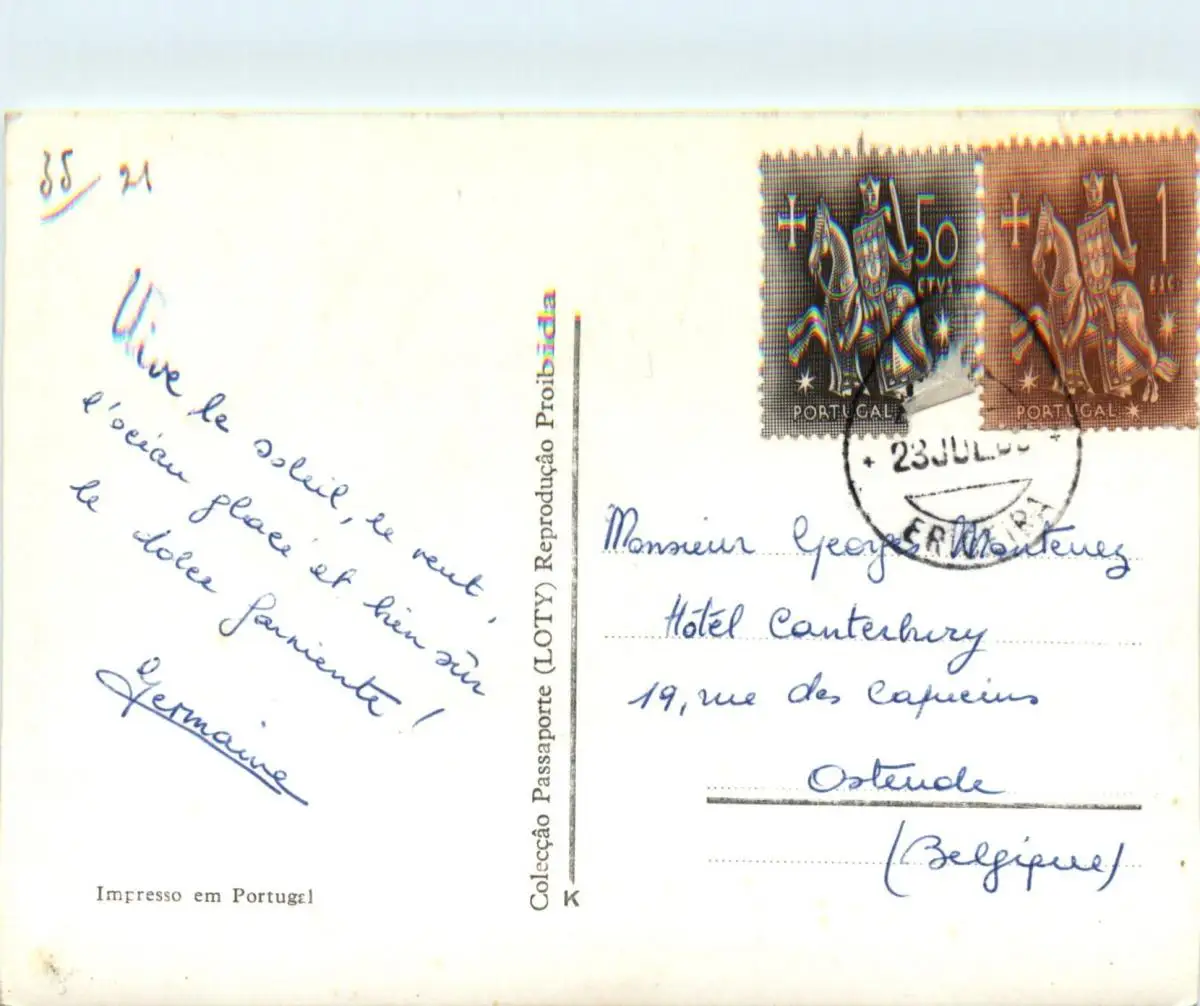 35/ 21
Vive le soleil, le vent,
l'océan glacé et bien sûr
le dolce farniente !
Germaine
Impresso em Portugal
Colecção Passaporte (LOTY) Reprodução Proibida
K
50
CTVS
PORTUGAL
1
ESC
PORTUGAL
23 JUL.
Monsieur Georges Montenez
Hôtel Canterbury
19, rue des Capucins
Ostende
(Belgique)